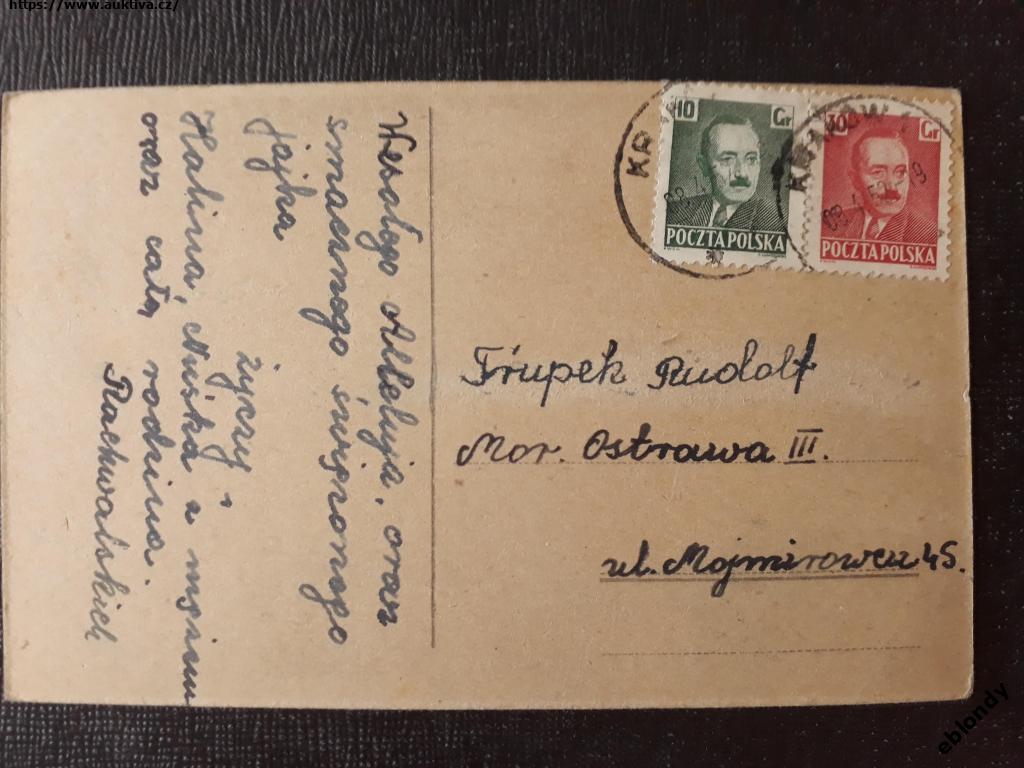 https://www.auktiva.cz/
Wesołego Alleluja, oraz
smacznego święconego
jajka
życzy
Halina, Nuśka z mężem
oraz cała rodzina
Rachwalskich
10 Gr
POCZTA POLSKA
30 Gr
POCZTA POLSKA
KRAKÓW 1
Frupek Rudolf
Mor. Ostrawa III.
ul. Mojmirowcu 45.
eblondy